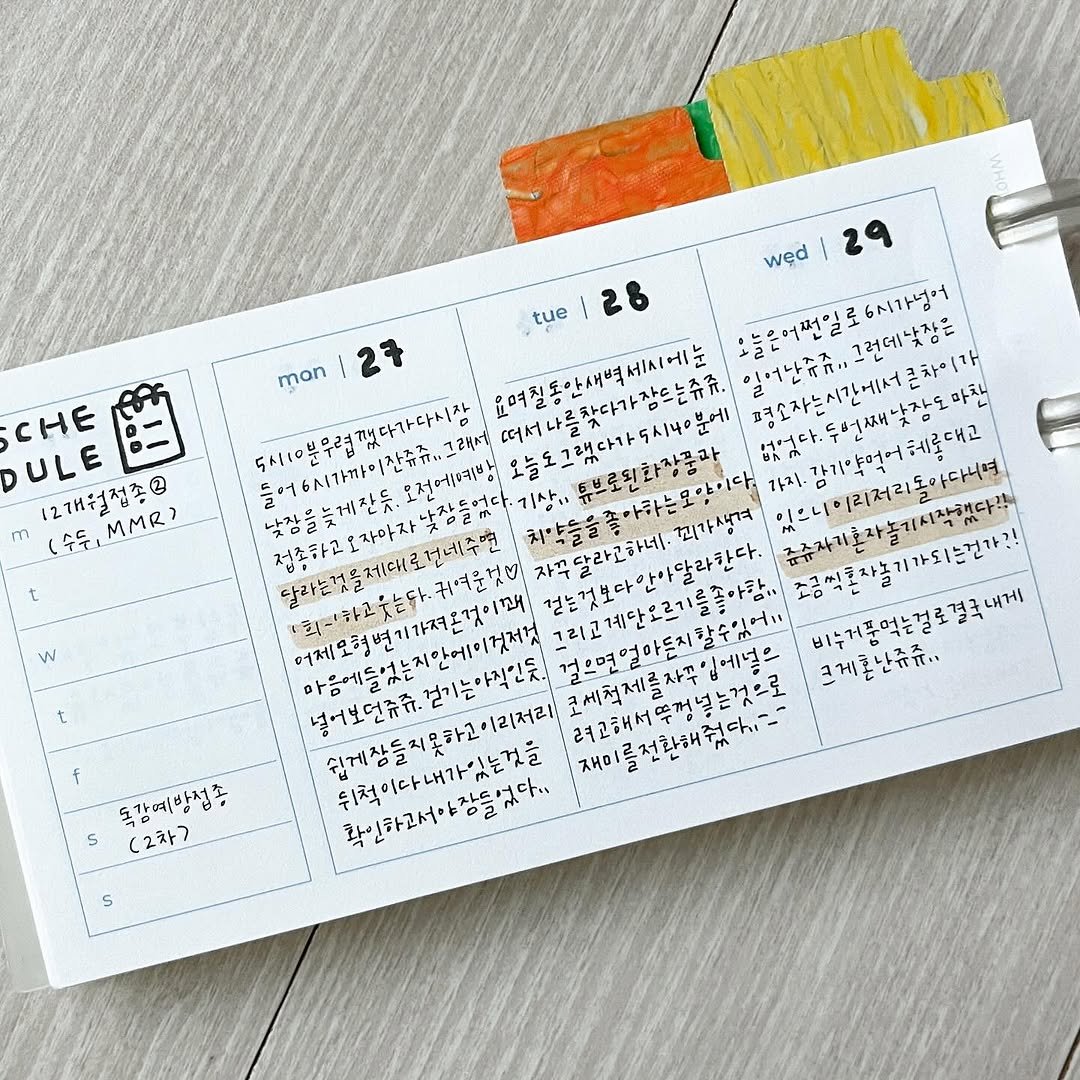 SCHE
DULE
m 12개월접종②
(수두, MMR)
t
w
t
f
s 독감예방접종
(2차)
s
mon | 27
5시10분무렵깼다가다시잠
들어 6시가까이잔쥬쥬,, 그래서
낮잠을늦게잔듯. 오전에예방
접종하고오자마자 낮잠들었다.
달라는것을제대로건네주면
'희-'하고웃는다. 귀여운것♡
어제모형변기가져온것이꽤
마음에들었는지안에이것저것
넣어보던쥬쥬. 걷기는아직인듯.
쉽게잠들지못하고이리저리
뒤척이다내가있는것을
확인하고서야잠들었다,,
tue | 28
요며칠동안새벽세시에눈
떠서나를찾다가잠드는쥬쥬.
오늘도그랬다가 5시40분에
기상,, 튜브로된화장품과
치약들을좋아하는모양이다.
자꾸달라고하네. 꾀가생겨
걷는것보다안아달라한다.
그리고계단오르기를좋아함,,
걸으면얼마든지할수있어,,
코세척제를자꾸입에넣으
려고해서뚜껑넣는것으로
재미를전환해줬다,,--
wed | 29
오늘은어쩐일로 6시가넘어
일어난쥬쥬,, 그런데낮잠은
평소자는시간에서큰차이가
없었다. 두번째낮잠도마찬
가지. 감기약먹어헤롱대고
있으니이리저리돌아다니며
쥬쥬자기혼자놀기시작했다!!
조금씩혼자놀기가되는건가?!
비누거품먹는걸로결국내게
크게혼난쥬쥬,,